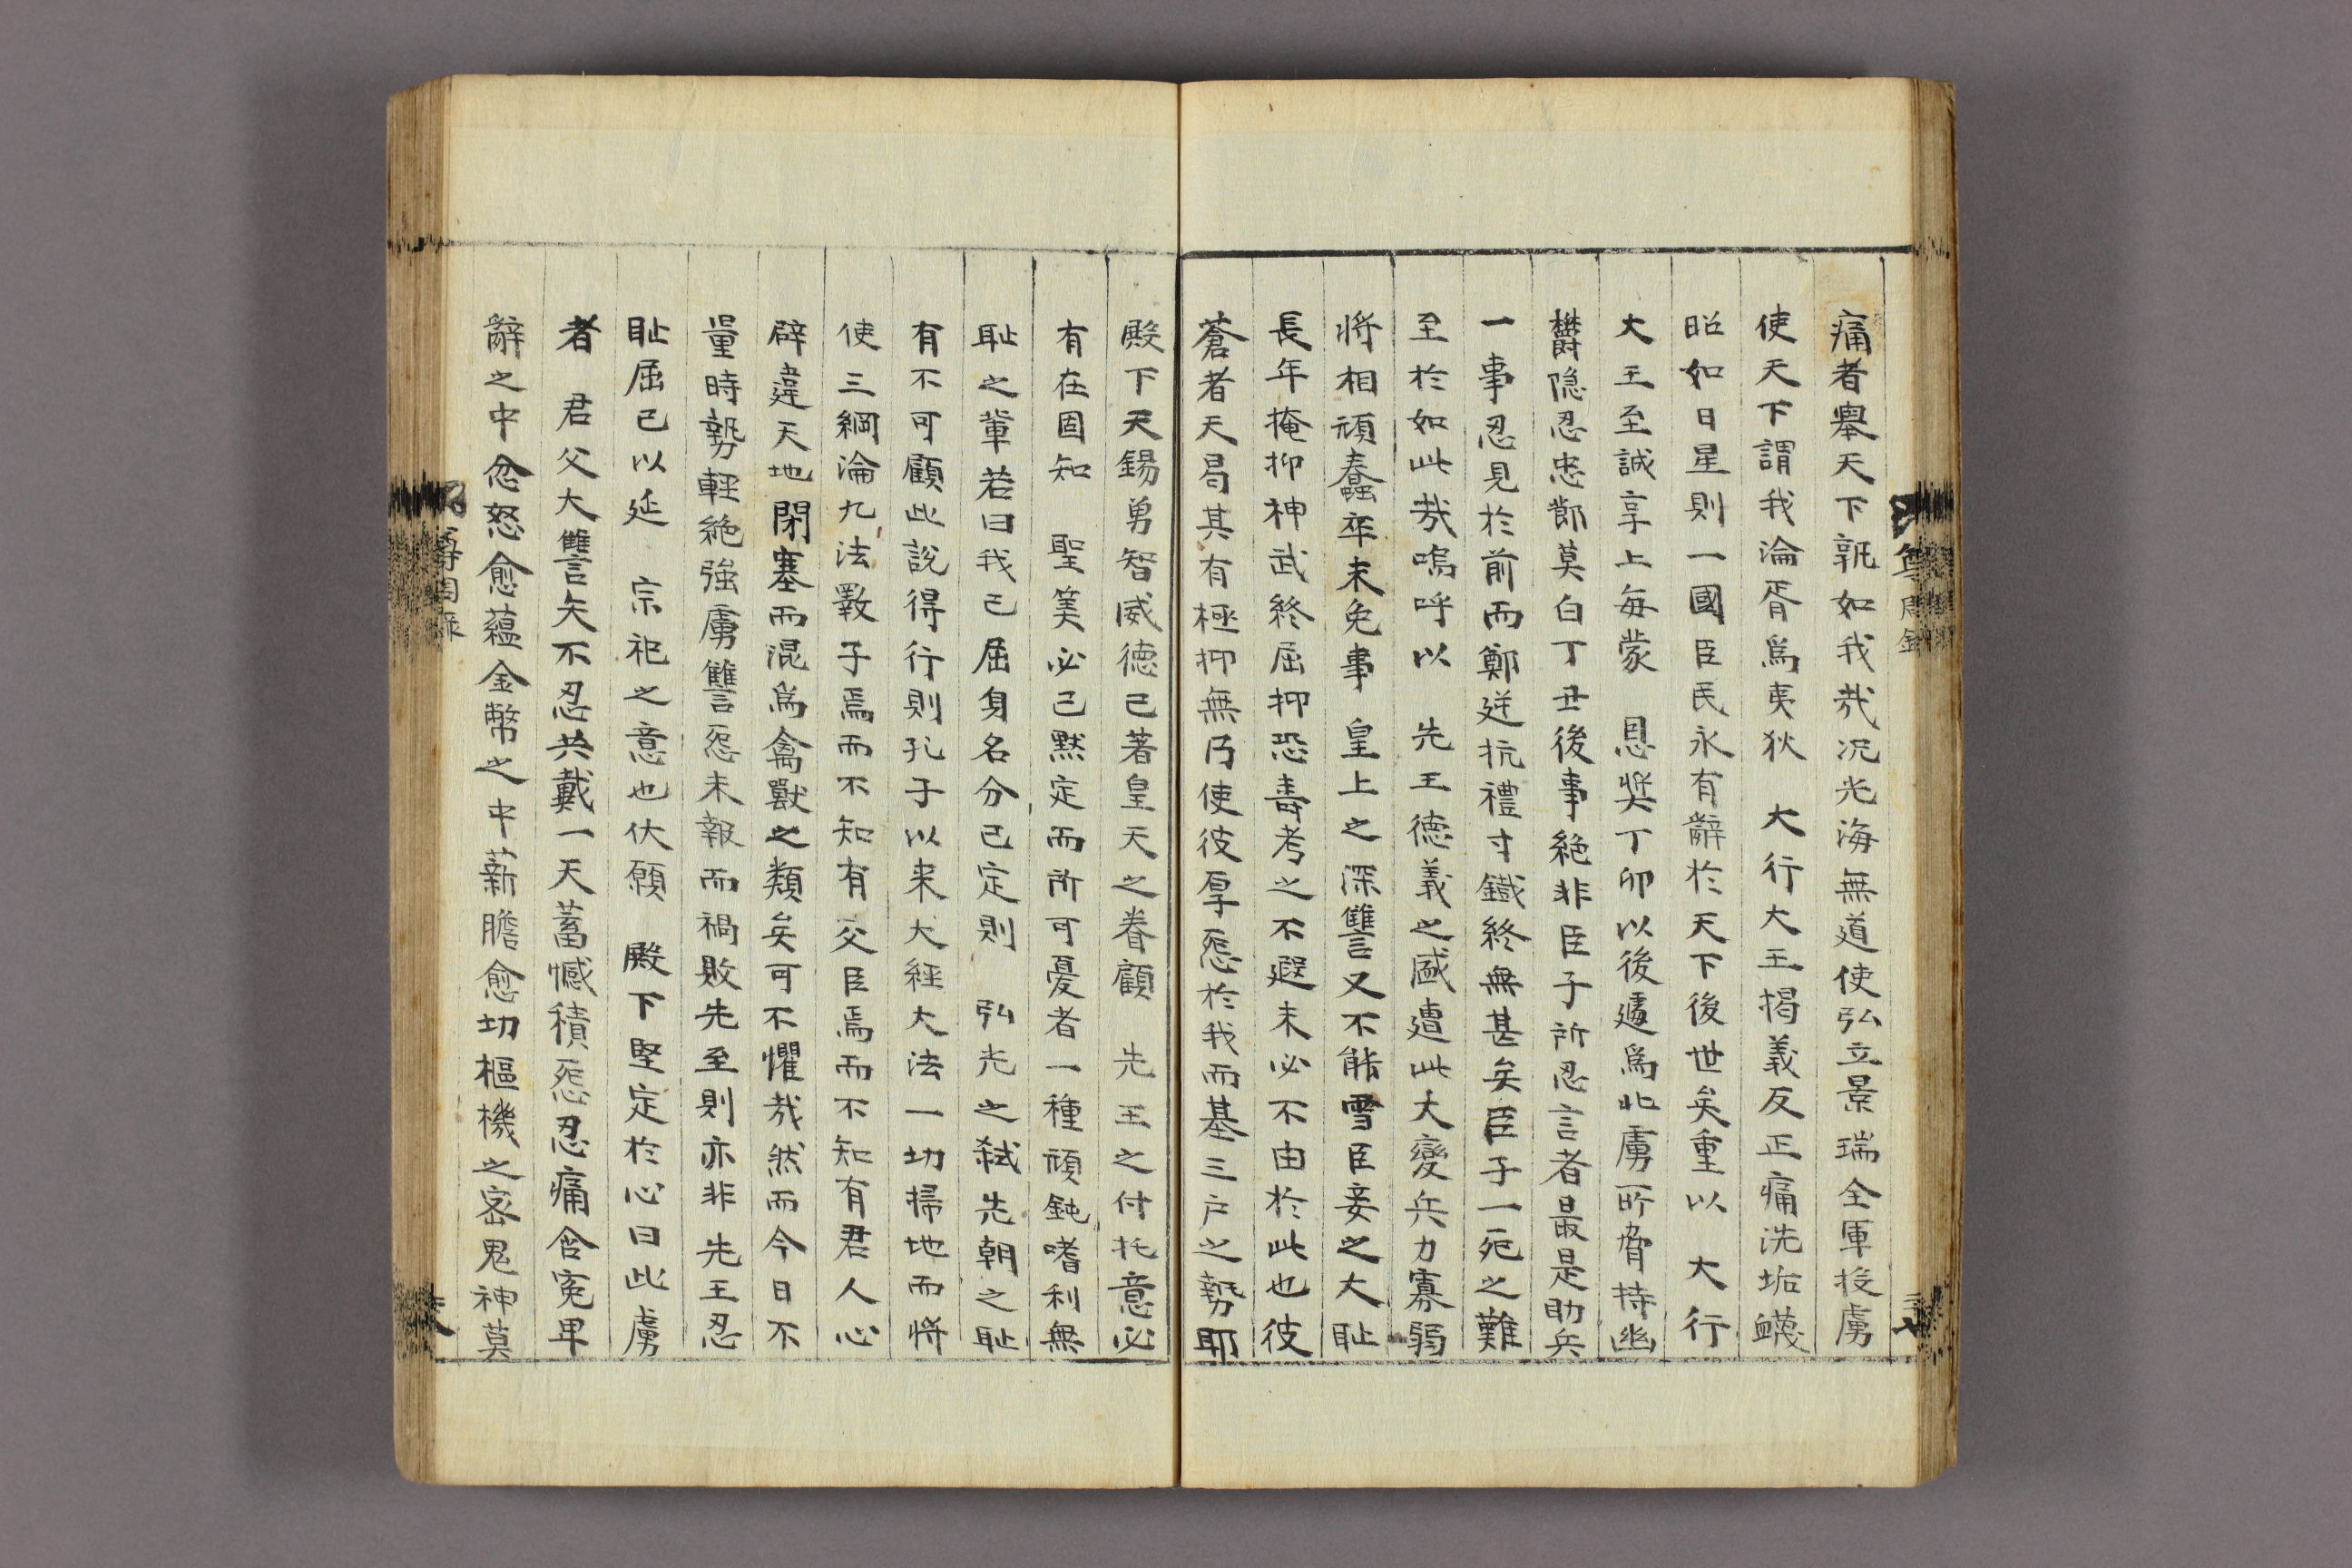 痛者舉天下孰如我哉况光海無道使弘立景瑞全軍投虜
使天下謂我淪胥爲夷狄 大行大王揭義反正痛洗垢衊
昭如日星則一國臣民永有辭於天下後世矣重以 大行
大王至誠享上每蒙 恩奬丁卯以後遽爲北虜所脅持幽
欝隐忍忠節莫白丁丑後事絶非臣子所忍言者最是助兵
一事忍見於前而鄭廷抗禮寸鐵終無甚矣臣子一死之難
至於如此哉嗚呼以 先王德義之盛遭此大變兵力寡弱
將相頑蠢卒未免事 皇上之深讐又不能雪臣妾之大耻
長年掩抑神武終屈抑恐壽考之不遐未必不由於此也彼
蒼者天曷其有極抑無乃使彼厚怨於我而基三户之勢耶
殿下天錫勇智威德已著皇天之眷顧 先王之付托意必
有在固知 聖筭必已黙定而所可憂者一種頑鈍嗜利無
耻之輩若曰我已屈身名分已定則 弘光之弑先朝之耻
有不可顧此說得行則孔子以来大經大法一切掃地而將
使三綱淪九法斁子焉而不知有父臣焉而不知有君人心
僻違天地閉塞而混爲禽獸之類矣可不懼哉然而今日不
量時勢輕絶強虜讐怨未報而禍敗先至則亦非先王忍
耻屈已以延 宗祀之意也伏願 殿下堅定於心曰此虜
者 君父大讐矢不忍共戴一天蓄憾積怨忍痛含寃卑
辭之中忿怒愈蘊金幣之中薪膽愈切樞機之密鬼神莫